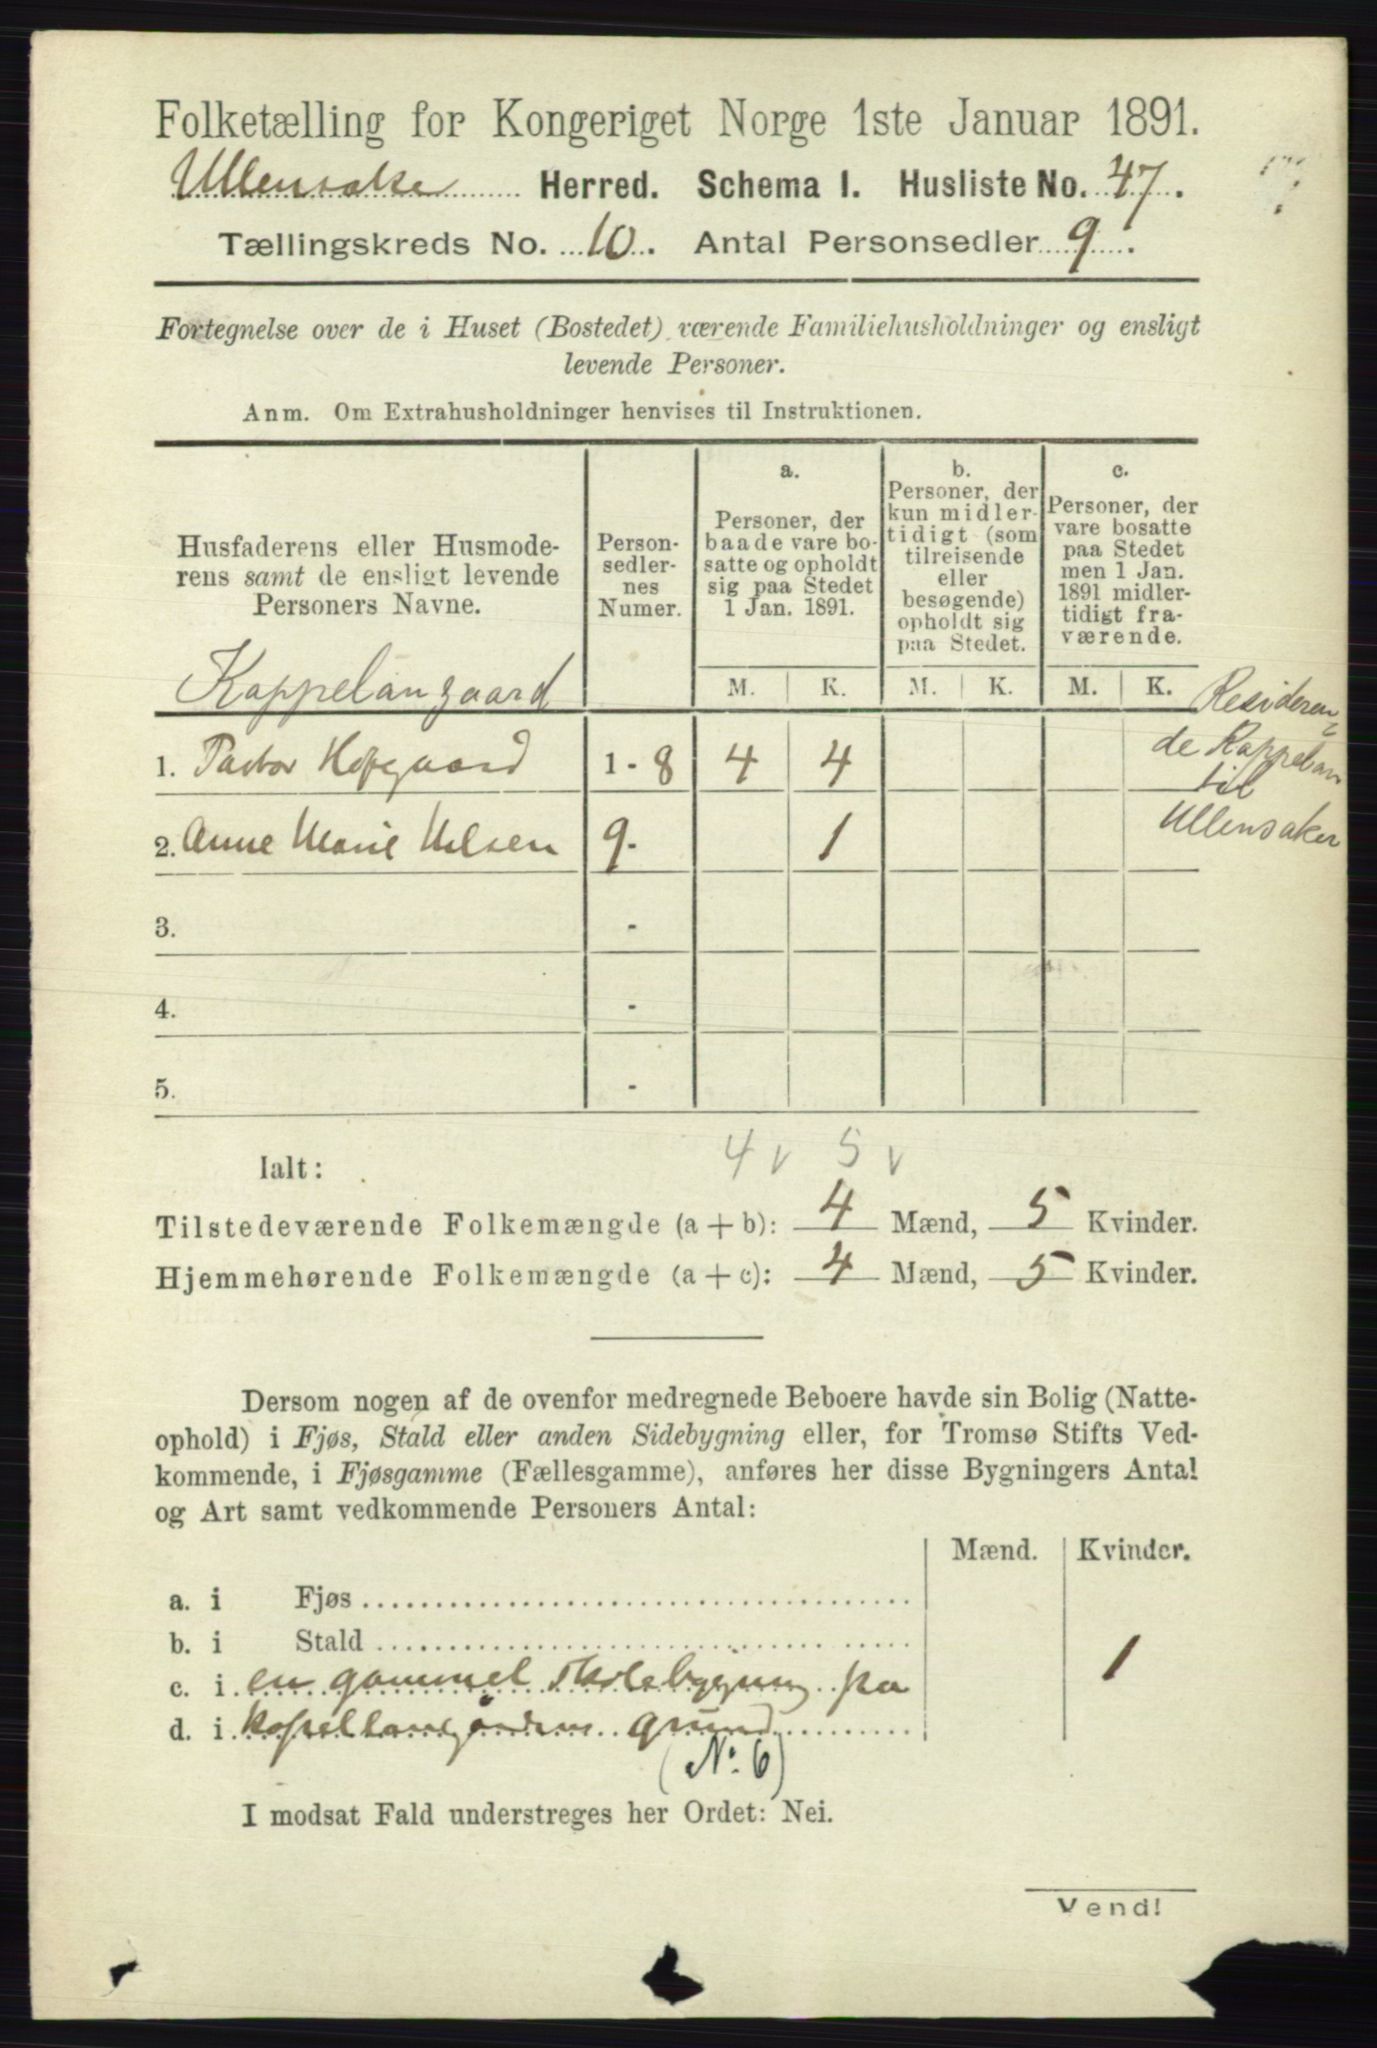 Folketælling for Kongeriget Norge 1ste Januar 1891.
Ullensaker Herred. Schema I. Husliste No. 47.
Tællingskreds No. 10. Antal Personsedler 9.
Fortegnelse over de i Huset (Bostedet) værende Familiehusholdninger og ensligt
levende Personer.
Anm. Om Extrahusholdninger henvises til Instruktionen.
Husfaderens eller Husmode-
rens samt de ensligt levende
Personers Navne.
Kappelangaard
Person-
sedler-
nes
Numer.
a.
Personer, der
baade vare bo-
satte og opholdt
sig paa Stedet
1 Jan. 1891.
b.
Personer, der
kun midler-
tidigt (som
tilreisende
eller
besøgende)
opholdt sig
paa Stedet.
c.
Personer, der
vare bosatte
paa Stedet
men 1 Jan.
1891 midler-
tidigt fra-
værende.
M. K. M. K. M. K.
1. Pastor Hofgaard 1 - 8 4 4
Resideren=
de Kappelan
til
Ullensaker
2. Anne Marie Nilsen 9- 1
3. -
4. -
5. -
4 v 5 v
Ialt:
Tilstedeværende Folkemængde (a + b): 4 Mænd, 5 Kvinder.
Hjemmehørende Folkemængde (a + c): 4 Mænd, 5 Kvinder.
Dersom nogen af de ovenfor medregnede Beboere havde sin Bolig (Natte-
ophold) i Fjøs, Stald eller anden Sidebygning eller, for Tromsø Stifts Ved-
kommende, i Fjøsgamme (Fællesgamme), anføres her disse Bygningers Antal
og Art samt vedkommende Personers Antal:
Mænd. Kvinder.
a. i Fjøs
b. i Stald 1
c. i en gammel skolebygning pa
d. i grund
(No. 6)
I modsat Fald understreges her Ordet: Nei.
Vend!